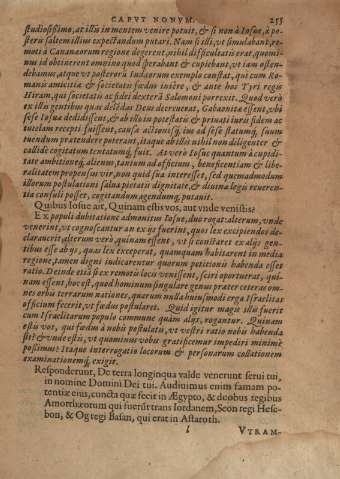 CAPVT NONVM. 255
studiosissimo, at illis in mentem venire potuit, & si non à Iosue, à po-
steris saltem illius expectandum putari. Nam si illi, vt simulabant, re-
moti à Cananæorum regione degerent, nihil difficultatis erat, quomi-
nus id obtinerent omnino quod sperabant & cupiebant, vt iam osten-
debamus, atque vt posterorũ Iudæorum exemplo constat, qui cum Ro-
manis amicitiæ & societatis fœdus iniêre, & ante hos Tyri regæ
Hiram, qui societatis ac fidei dexterã Salomoni porrexit. Quod verò
ex illis gentibus quas delêdas Deus decreuerat, Gabaonitæ essent, vbi
sese Iosue dedidissent, & ab ello in potestatis & priuati iuris fidem ac
tutelam recepti fuissent, causa actionisq́; ius ad sese statumq́; suum
tuendum prætendere poterant, itaque ab illis nihil non diligenter &
callidè cogitatum tentatumq́; fuit. At verò Iosue quantum à cupidi-
tate ambitioneq́; alienus, tantùm ad officium, beneficentiam & libe-
ralitatem propensus vir, non quid sua interesset, sed quemadmodum
illorum postulationi salua pietatis dignitate, & diuinæ legis reueren-
tia consuli posset, cogitandum agendumq́; putauit.
Quibus Iosue ait, Quinam estis vos, aut vnde venistis?
Ex populi dubitatione admonitus Iosue, duo rogat: alterum, vnde
venerint, vt cognoscantur an ex ijs fuerint, quos lex excipiendos de-
clarauerit, alterum verò, quinam essent, vt si constaret ex alijs gen-
tibus esse ab ijs, quas lex exceperat, quamquam habitarent in media
regione, tamen digni iudicarentur quorum petitionis habenda esset
ratio. Deinde etiã si ex remotis locis venissent, sciri oportuerat, qui-
nam essent, hoc est, quod hominum singulare genus præter ceteras om-
nes orbis terrarum nationes, quarum nulla huiusmodi erga Israëlitas
officium fecerit, vt fœdus postularet. Quid igitur magis illis fuerit
cum Israëlitarum populo commune quàm alijs, rogantur. Quinam
estis vos, qui fœdus à nobis postulatis, vt vestri ratio nobis habenda
sit? & vnde estis, vt quominus vobis gratificemur impediri minimè
possimus? Itaque interrogatio locorum & personarum collationem
examinationemq́; exigit.
Responderunt, De terra longinqua valde venerunt serui tui,
in nomine Domini Dei tui. Audiuimus enim famam po-
tentiæ eius, cuncta quæ fecit in Ægypto, & duobus regibus
Amorrhæorum qui fuerũt trans Iordanem, Seon regi Hese-
bon, & Og regi Basan, qui erat in Astaroth.
VTRAM-